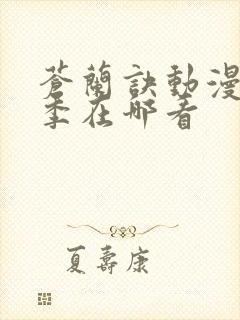 蒼蘭訣動漫
季在哪看
夏壽康